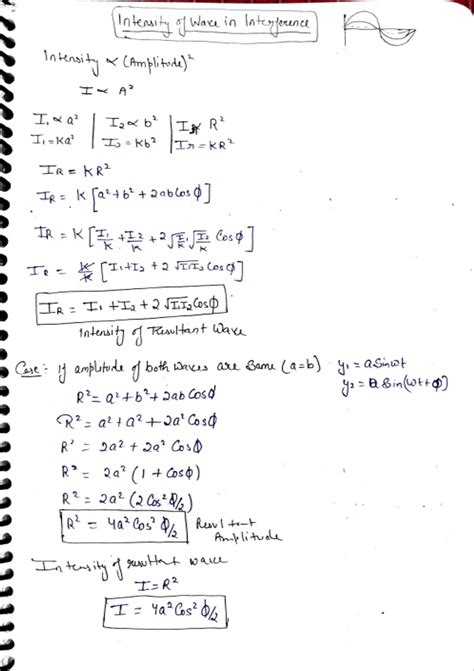 Intensity of Wave in Interference
Intensity ∝ (Amplitude)²
I ∝ A²
I₁ ∝ a² | I₂ ∝ b² | I ∝ R²
I₁ = Ka² | I₂ = Kb² | Ir = KR²
IR = KR²
IR = K [a² + b² + 2ab Cos ϕ]
IR = K [I₁/K + I₂/K + 2 √I₁/K √I₂/K Cos ϕ]
IR = K/K [I₁ + I₂ + 2 √I₁I₂ Cos ϕ]
IR = I₁ + I₂ + 2 √I₁I₂ Cos ϕ
Intensity of Resultant Wave
Case:- if amplitude of both waves are Same (a=b) y₁ = a Sin ωt
y₂ = a Sin (ωt + ϕ)
R² = a² + b² + 2ab Cos ϕ
R² = a² + a² + 2a² Cos ϕ
R² = 2a² + 2a² Cos ϕ
R² = 2a² (1 + Cos ϕ)
R² = 2a² (2 Cos² ϕ/2)
R² = 4a² Cos² ϕ/2 Resultant
Amplitude
Intensity of resultant wave
I = R²
I = 4a² Cos² ϕ/2